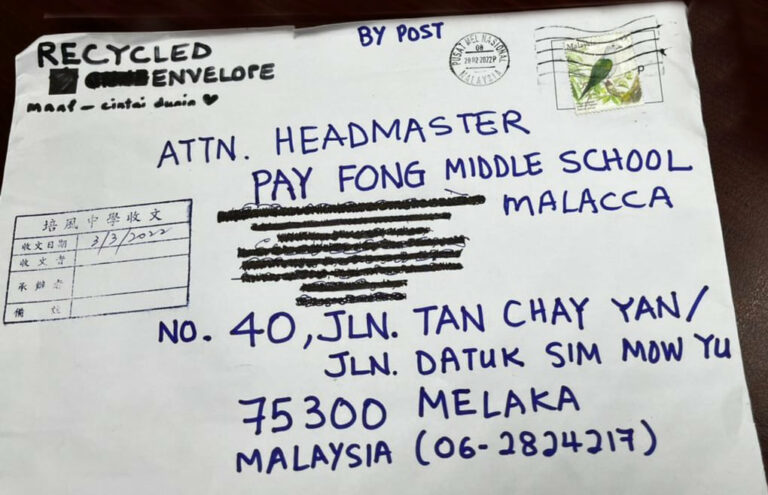 BY POST
RECYCLED
ENVELOPE
maaf - cintai dunia ♥
PUSAT MEL NASIONAL
08
MALAYSIA
Malaysia
ATTN. HEADMASTER
PAY FONG MIDDLE SCHOOL
MALACCA
培風中學收文
收文日期 3/3/2022
收文者
承辦者
備
NO. 40, JLN. TAN CHAY YAN/
JLN. DATUK SIM MOW YU
75300 MELAKA
MALAYSIA (06-2824217)